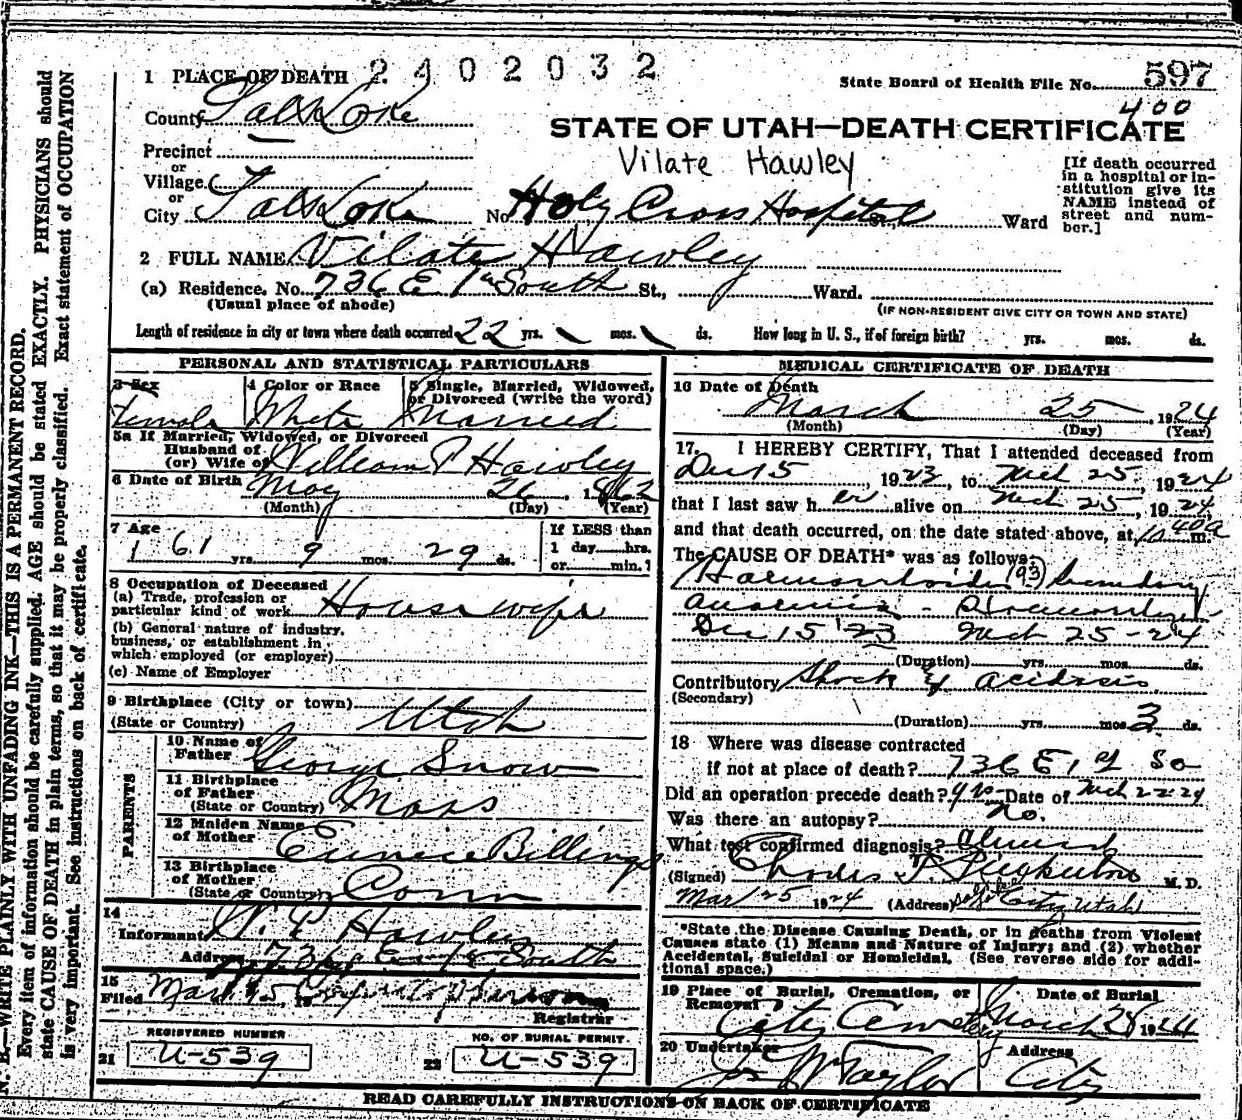 1 PLACE OF DEATH 2402032
State Board of Health File No. 597
400
County Salt Lake
STATE OF UTAH—DEATH CERTIFICATE
Vilate Hawley
Precinct
or
Village
or
City Salt Lake No. Holy Cross Hospital St., Ward
[If death occurred
in a hospital or in-
stitution give its
NAME instead of
street and num-
ber.]
2 FULL NAME Vilate Hawley
(a) Residence. No. 736 E 1st South St., Ward.
(Usual place of abode)
(IF NON-RESIDENT GIVE CITY OR TOWN AND STATE)
Length of residence in city or town where death occurred 22 yrs. mos. ds. How long in U. S., if of foreign birth? yrs. mos. ds.
PERSONAL AND STATISTICAL PARTICULARS
3 Sex 4 Color or Race 5 Single, Married, Widowed,
or Divorced (write the word)
Female White Married
5a If Married, Widowed, or Divorced
Husband of
(or) Wife of William P Hawley
6 Date of Birth May 26, 1862
(Month) (Day) (Year)
7 Age
61 yrs. 9 mos. 29 ds.
If LESS than
1 day hrs.
or min.?
8 Occupation of Deceased
(a) Trade, profession or
particular kind of work Housewife
(b) General nature of industry,
business, or establishment in
which employed (or employer)
(c) Name of Employer
9 Birthplace (City or town)
(State or Country) Utah
PARENTS
10 Name of
Father George Snow
11 Birthplace
of Father
(State or Country) Mass
12 Maiden Name
of Mother Eunice Billings
13 Birthplace
of Mother
(State or Country) Conn
14
Informant W. P. Hawley
Address 736 E 1st South
15
Filed Mar
Registrar
REGISTERED NUMBER
21 U-539
NO. OF BURIAL PERMIT
22 U-539
MEDICAL CERTIFICATE OF DEATH
16 Date of Death
March 25 1924
(Month) (Day) (Year)
17. I HEREBY CERTIFY, That I attended deceased from
Dec 15, 1923, to Mch 25, 1924
that I last saw her alive on Mch 25, 1924,
and that death occurred, on the date stated above, at 10 40a m.
The CAUSE OF DEATH* was as follows:
(93) Secondary
Dec 15 '23 Mch 25-24
(Duration) yrs. mos. ds.
Contributory Shock & acidosis
(Secondary)
(Duration) yrs. mos. 3 ds.
18 Where was disease contracted
if not at place of death? 736 E 1st So
Did an operation precede death? yes Date of Mch 22-24
Was there an autopsy? No.
What test confirmed diagnosis? Clinical
(Signed) M. D.
Mar 25 1924 (Address) City Utah
*State the Disease Causing Death, or in deaths from Violent
Causes state (1) Means and Nature of Injury; and (2) whether
Accidental, Suicidal or Homicidal. (See reverse side for addi-
tional space.)
19 Place of Burial, Cremation, or
Removal
Date of Burial
City Cemetery March 28 1924
20 Undertaker Address
Jos Wm Taylor City
READ CAREFULLY INSTRUCTIONS ON BACK OF CERTIFICATE
N. B.—WRITE PLAINLY WITH UNFADING INK—THIS IS A PERMANENT RECORD.
Every item of information should be carefully supplied. AGE should be stated EXACTLY. PHYSICIANS should
state CAUSE OF DEATH in plain terms, so that it may be properly classified. Exact statement of OCCUPATION
is very important. See instructions on back of certificate.